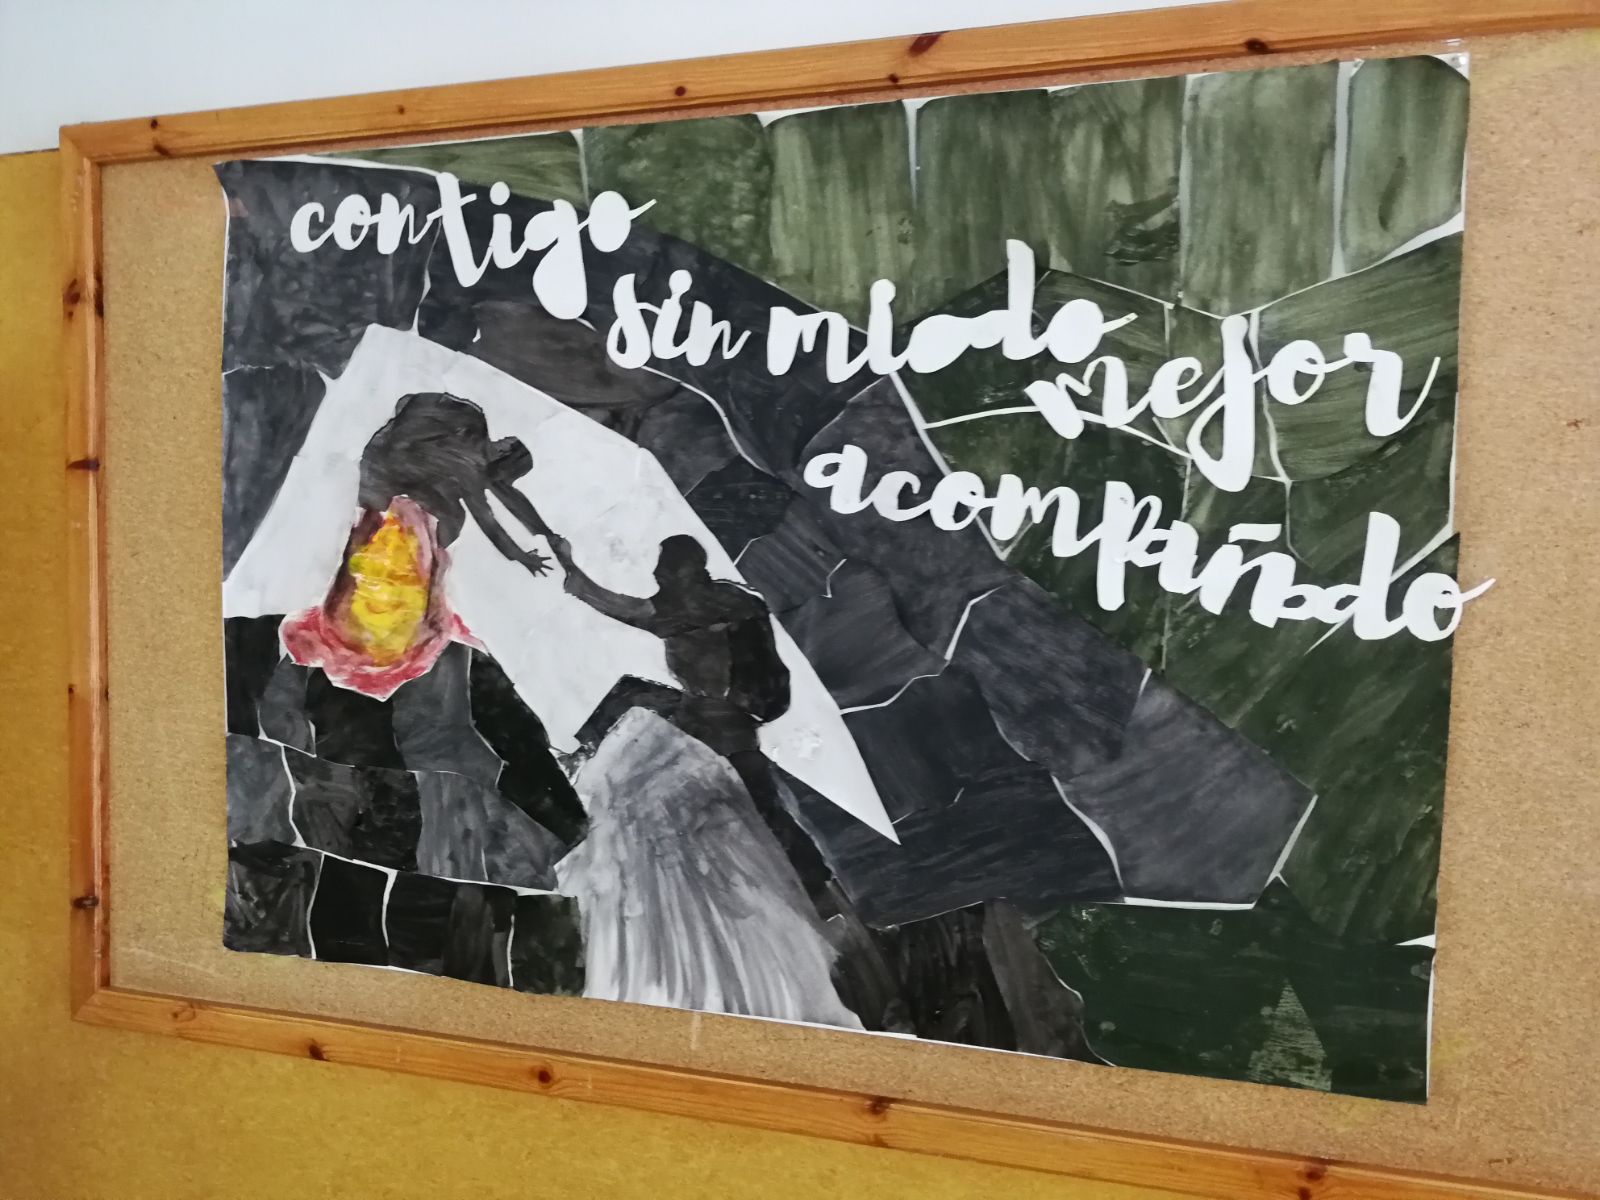 contigo
sin miedo
mejor
acompañado